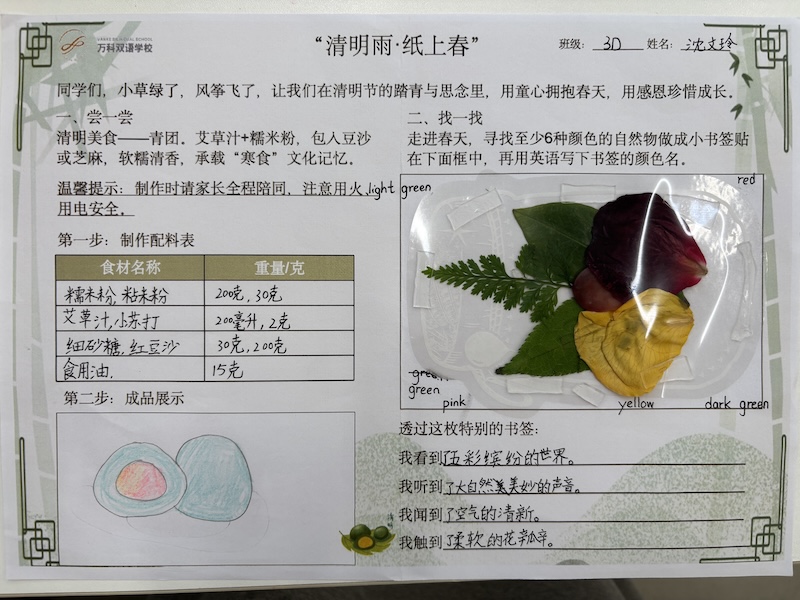 VANKE BILINGUAL SCHOOL
万科双语学校
“清明雨·纸上春”
班级：3D 姓名：沈文玲
同学们，小草绿了，风筝飞了，让我们在清明节的踏青与思念里，用童心拥抱春天，用感恩珍惜成长。
一、尝一尝
清明美食——青团。艾草汁+糯米粉，包入豆沙
或芝麻，软糯清香，承载“寒食”文化记忆。
温馨提示：制作时请家长全程陪同，注意用火、
用电安全。
第一步：制作配料表
食材名称 重量/克
糯米粉，粘米粉 200克，30克
艾草汁，小苏打 200毫升，2克
细砂糖，红豆沙 30克，200克
食用油. 15克
第二步：成品展示
清明
二、找一找
走进春天，寻找至少6种颜色的自然物做成小书签贴
在下面框中，再用英语写下书签的颜色名。
light green
red
green
green
pink
yellow
dark green
透过这枚特别的书签：
我看到了五彩缤纷的世界。
我听到了大自然美妙的声音。
我闻到了空气的清新。
我触到了柔软的花瓣。